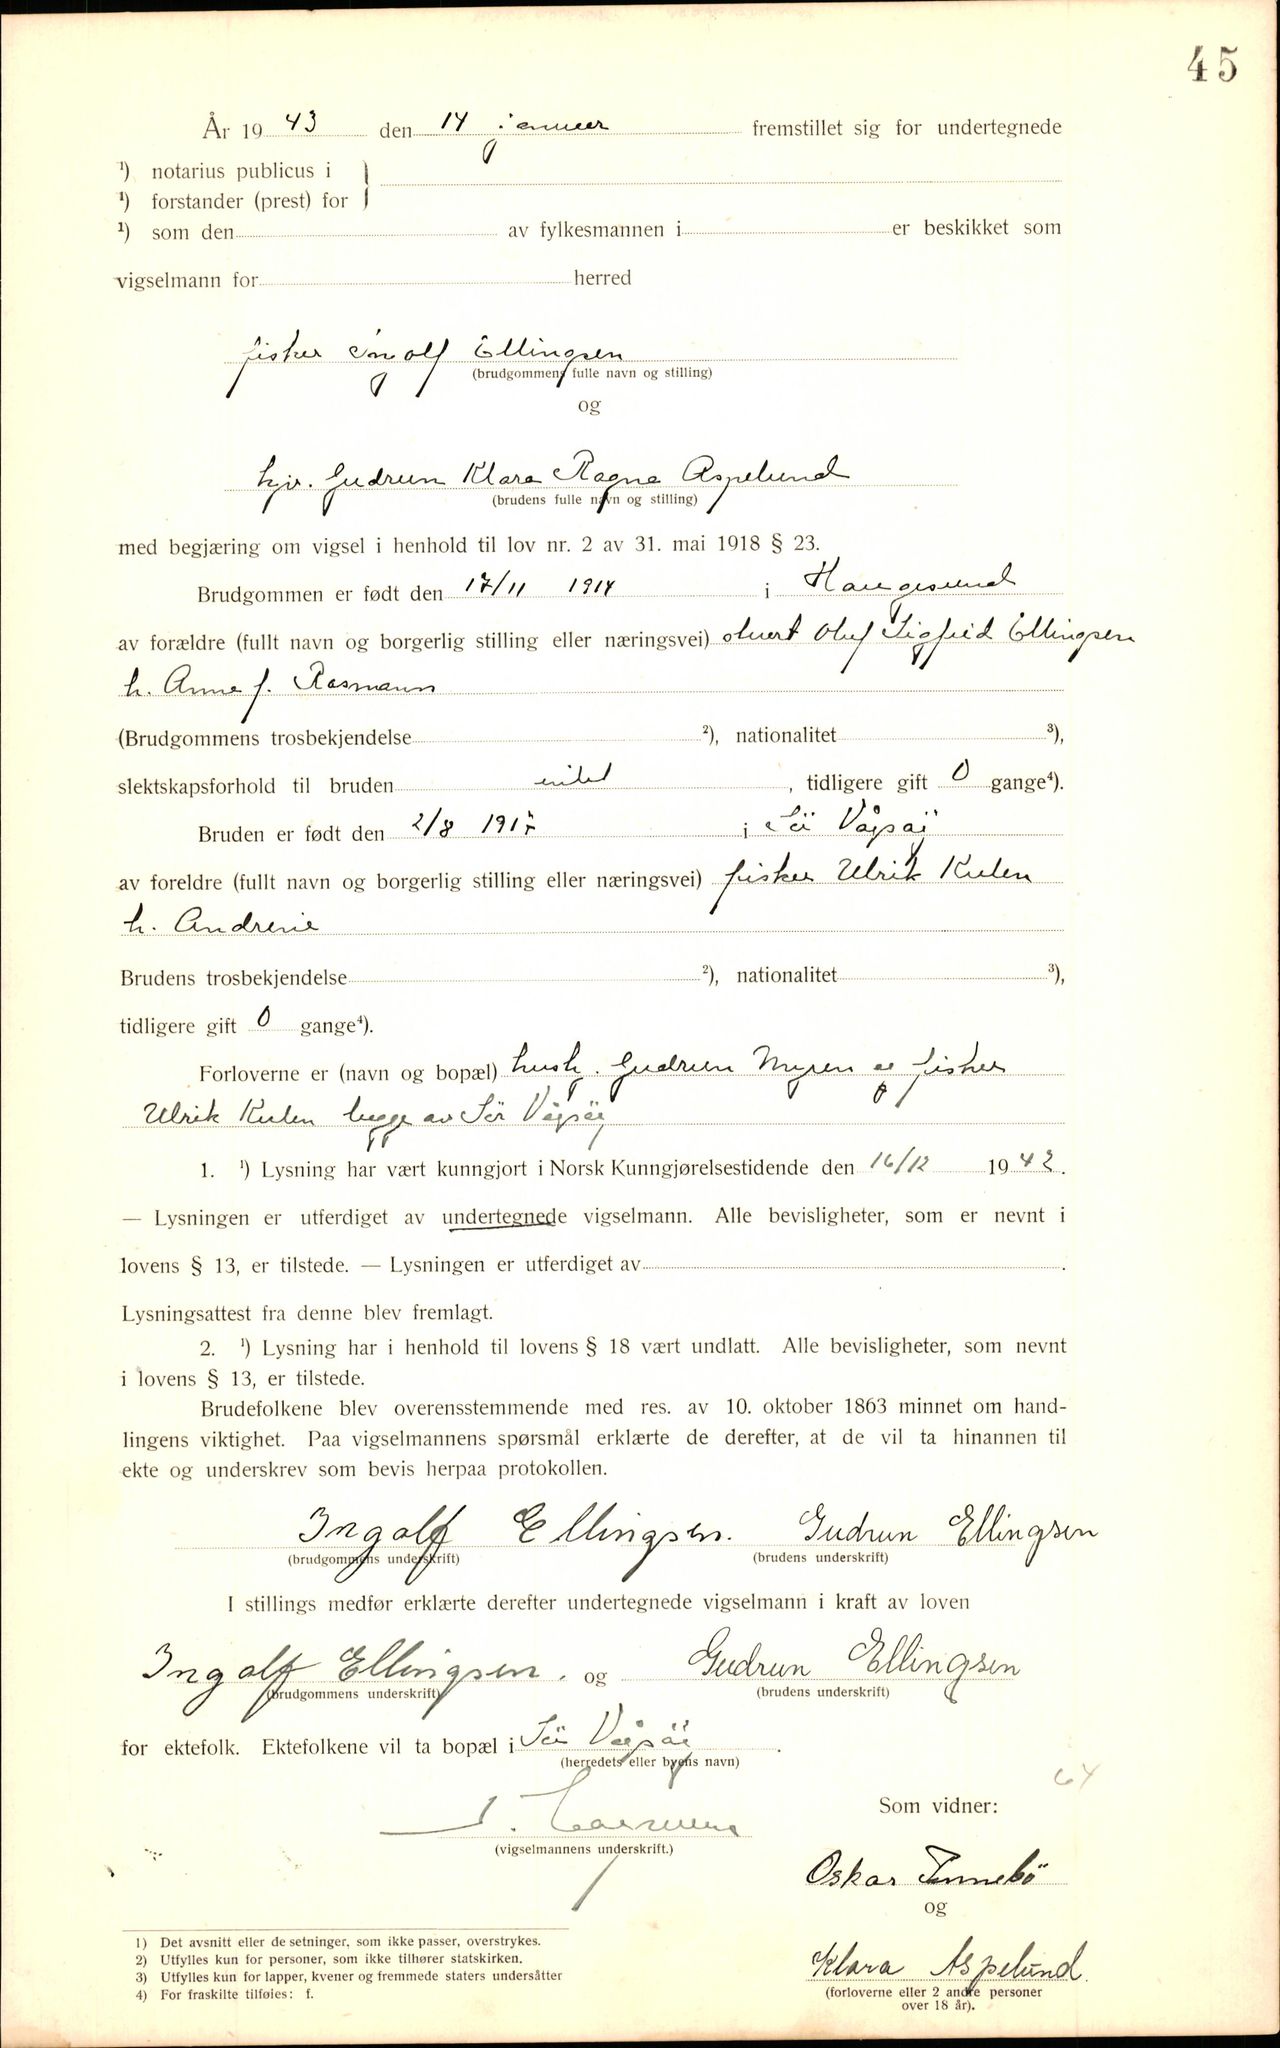 45
År 19 43 den 14 januar fremstillet sig for undertegnede
¹) notarius publicus i
¹) forstander (prest) for
¹) som den av fylkesmannen i er beskikket som
vigselmann for herred
fisker Ingolf Ellingsen
(brudgommens fulle navn og stilling)
og
hjv. Gudrun Klara Ragna Aspelund
(brudens fulle navn og stilling)
med begjæring om vigsel i henhold til lov nr. 2 av 31. mai 1918 § 23.
Brudgommen er født den 17/11 1914 i Haugesund
av forældre (fullt navn og borgerlig stilling eller næringsvei) Oluf Sigfrid Ellingsen
h. Anna f. Rasmann
(Brudgommens trosbekjendelse ²), nationalitet ³),
slektskapsforhold til bruden intet , tidligere gift 0 gange⁴).
Bruden er født den 2/8 1917 i Sör Vågsöy
av foreldre (fullt navn og borgerlig stilling eller næringsvei) fisker Ulrik Kulen
h. Andrene
Brudens trosbekjendelse ²), nationalitet ³),
tidligere gift 0 gange⁴).
Forloverne er (navn og bopæl) hush. Gudrun Myren og fisker
Ulrik Kulen begge av Sör Vågsöy
1. ¹) Lysning har vært kunngjort i Norsk Kunngjørelsestidende den 16/12 1942.
— Lysningen er utferdiget av undertegnede vigselmann. Alle bevisligheter, som er nevnt i
lovens § 13, er tilstede. — Lysningen er utferdiget av .
Lysningsattest fra denne blev fremlagt.
2. ¹) Lysning har i henhold til lovens § 18 vært undlatt. Alle bevisligheter, som nevnt
i lovens § 13, er tilstede.
Brudefolkene blev overensstemmende med res. av 10. oktober 1863 minnet om hand-
lingens viktighet. Paa vigselmannens spørsmål erklærte de derefter, at de vil ta hinannen til
ekte og underskrev som bevis herpaa protokollen.
Ingolf Ellingsen. Gudrun Ellingsen
(brudgommens underskrift) (brudens underskrift)
I stillings medfør erklærte derefter undertegnede vigselmann i kraft av loven
Ingolf Ellingsen. og Gudrun Ellingsen
(brudgommens underskrift) (brudens underskrift)
for ektefolk. Ektefolkene vil ta bopæl i Sör Vågsöy .
(herredets eller byens navn)
64
Som vidner:
(vigselmannens underskrift.)
Oskar Tennebö
og
Klara Aspelund.
(forloverne eller 2 andre personer
over 18 år).
1) Det avsnitt eller de setninger, som ikke passer, overstrykes.
2) Utfylles kun for personer, som ikke tilhører statskirken.
3) Utfylles kun for lapper, kvener og fremmede staters undersåtter
4) For fraskilte tilføies: f.